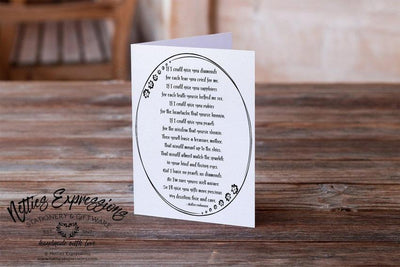 If I could give you diamonds
for each tear you cried for me.
If I could give you sapphires
for each truth you've helped me see.
If I could give you rubies
for the heartache that you've known.
If I could give you pearls
for the wisdom that you've shown.
Then you'll have a treasure, mother,
that would mount up to the skies.
That would almost match the sparkle
in your kind and loving eyes.
But I have no pearls, no diamonds,
As I'm sure you're well aware.
So I'll give you gifts more precious
my devotion, love and care.
-Author unknown-
Nettie's Expressions
STATIONERY & GIFTWARE
handmade with love
© Nettie's Expressions